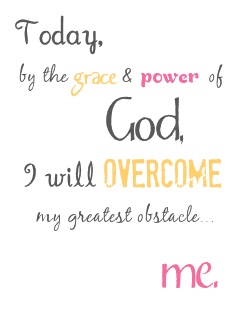 Today,
by the grace & power of
God,
I will OVERCOME
my greatest obstacle...
me.